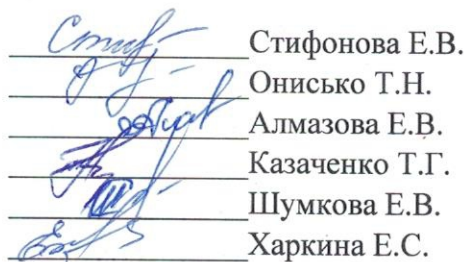 Стифонова Е.В.
Онисько Т.Н.
Алмазова Е.В.
Казаченко Т.Г.
Шумкова Е.В.
Харкина Е.С.